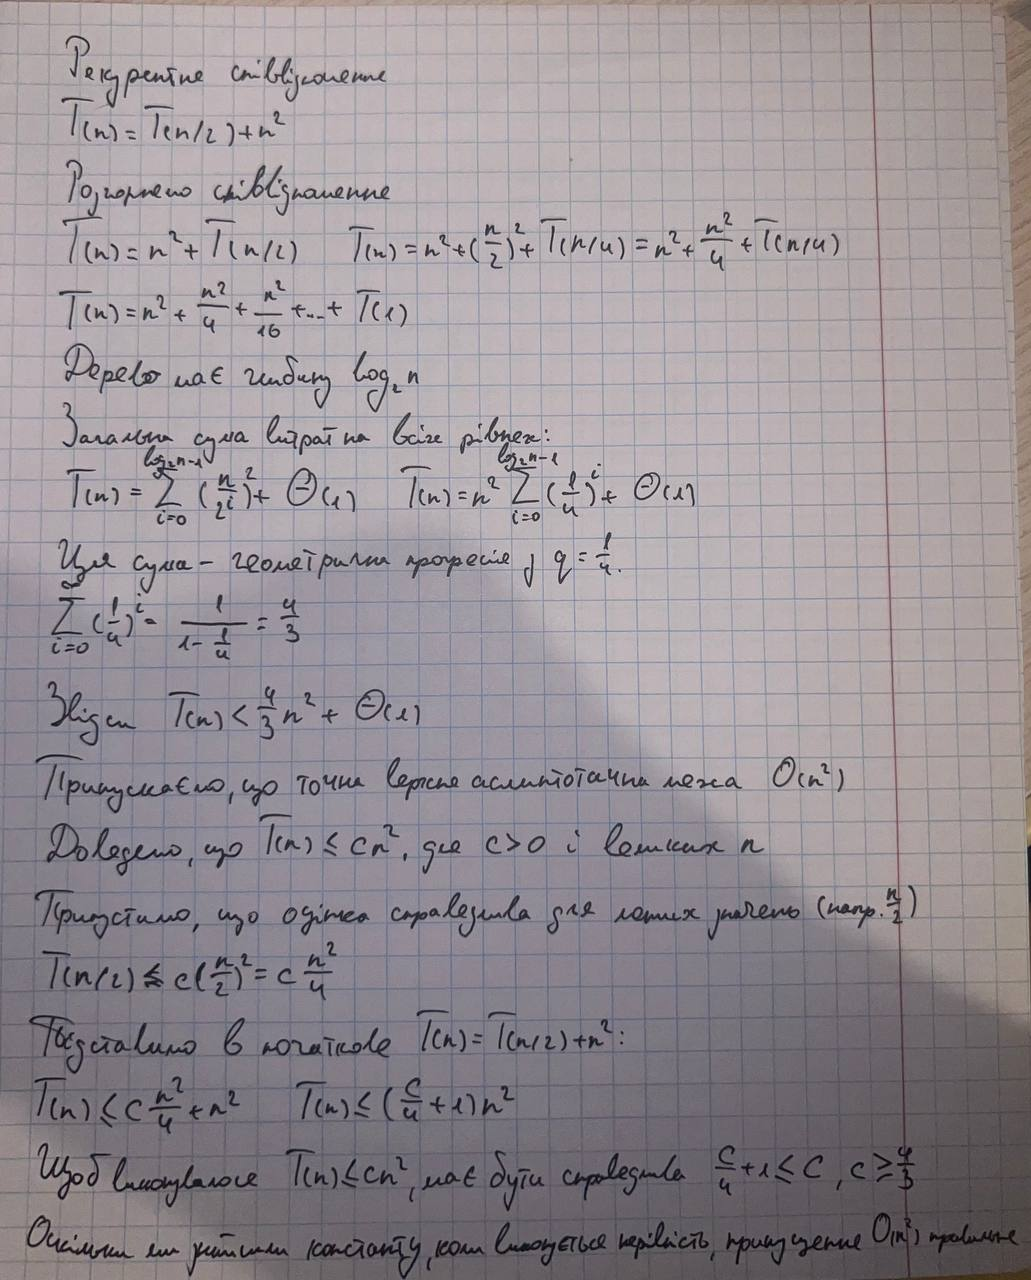 Рекурентне співвідношення
T(n) = T(n/2) + n²
Розгорнемо співвідношення
T(n) = n² + T(n/2)   T(n) = n² + (n/2)² + T(n/4) = n² + n²/4 + T(n/4)
T(n) = n² + n²/4 + n²/16 + ... + T(1)
Дерево має глибину log₂n
Загальна сума витрат на всіх рівнях:
T(n) = Σ_{i=0}^{log₂n-1} (n/2^i)² + Θ(1)   T(n) = n² Σ_{i=0}^{log₂n-1} (1/4)^i + Θ(1)
Ця сума - геометрична прогресія з q = 1/4.
Σ_{i=0}^{∞} (1/4)^i = 1/(1 - 1/4) = 4/3
Звідси T(n) < 4/3 n² + Θ(1)
Припускаємо, що точна верхня асимптотична межа O(n²)
Доведемо, що T(n) ≤ cn², для c > 0 і великих n
Припустимо, що оцінка справедлива для менших значень (напр. n/2)
T(n/2) ≤ c(n/2)² = c n²/4
Підставимо в початкове T(n) = T(n/2) + n²:
T(n) ≤ c n²/4 + n²   T(n) ≤ (c/4 + 1)n²
Щоб виконувалося T(n) ≤ cn², має бути справедлива c/4 + 1 ≤ c, c ≥ 4/3
Оскільки ми знайшли константу, коли виконується нерівність, припущення O(n²) правильне